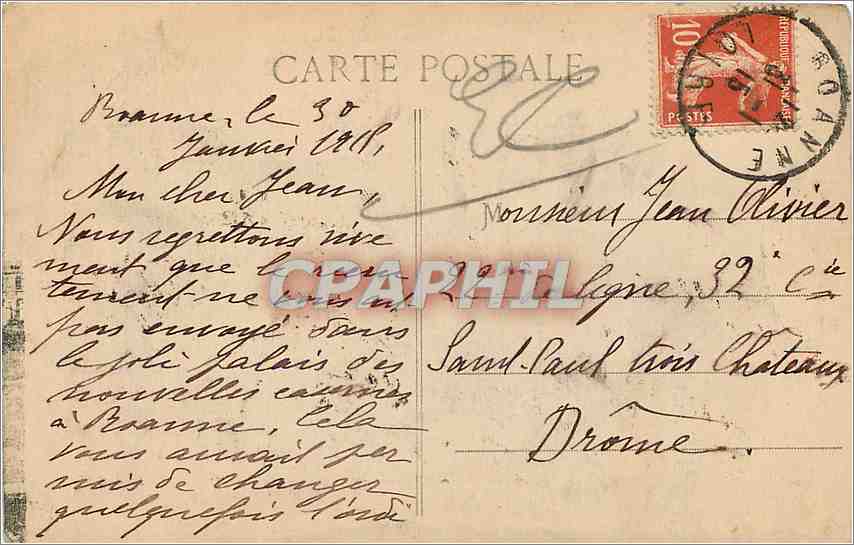 CARTE POSTALE
RÉPUBLIQUE FRANÇAISE
10
POSTES
ROANNE
LOIRE
Roanne, le 30
Janvier 1915,
Mon cher Jean,
Nous regrettons vive
ment que le recru
tement ne vous ait
pas envoyé dans
le joli palais des
nouvelles casernes
à Roanne. Cela
vous aurait per
mis de changer
quelquefois l'ordi
Monsieur Jean Olivier
de ligne, 32e Cie
Saint-Paul trois Châteaux
Drôme
CPAPHIL